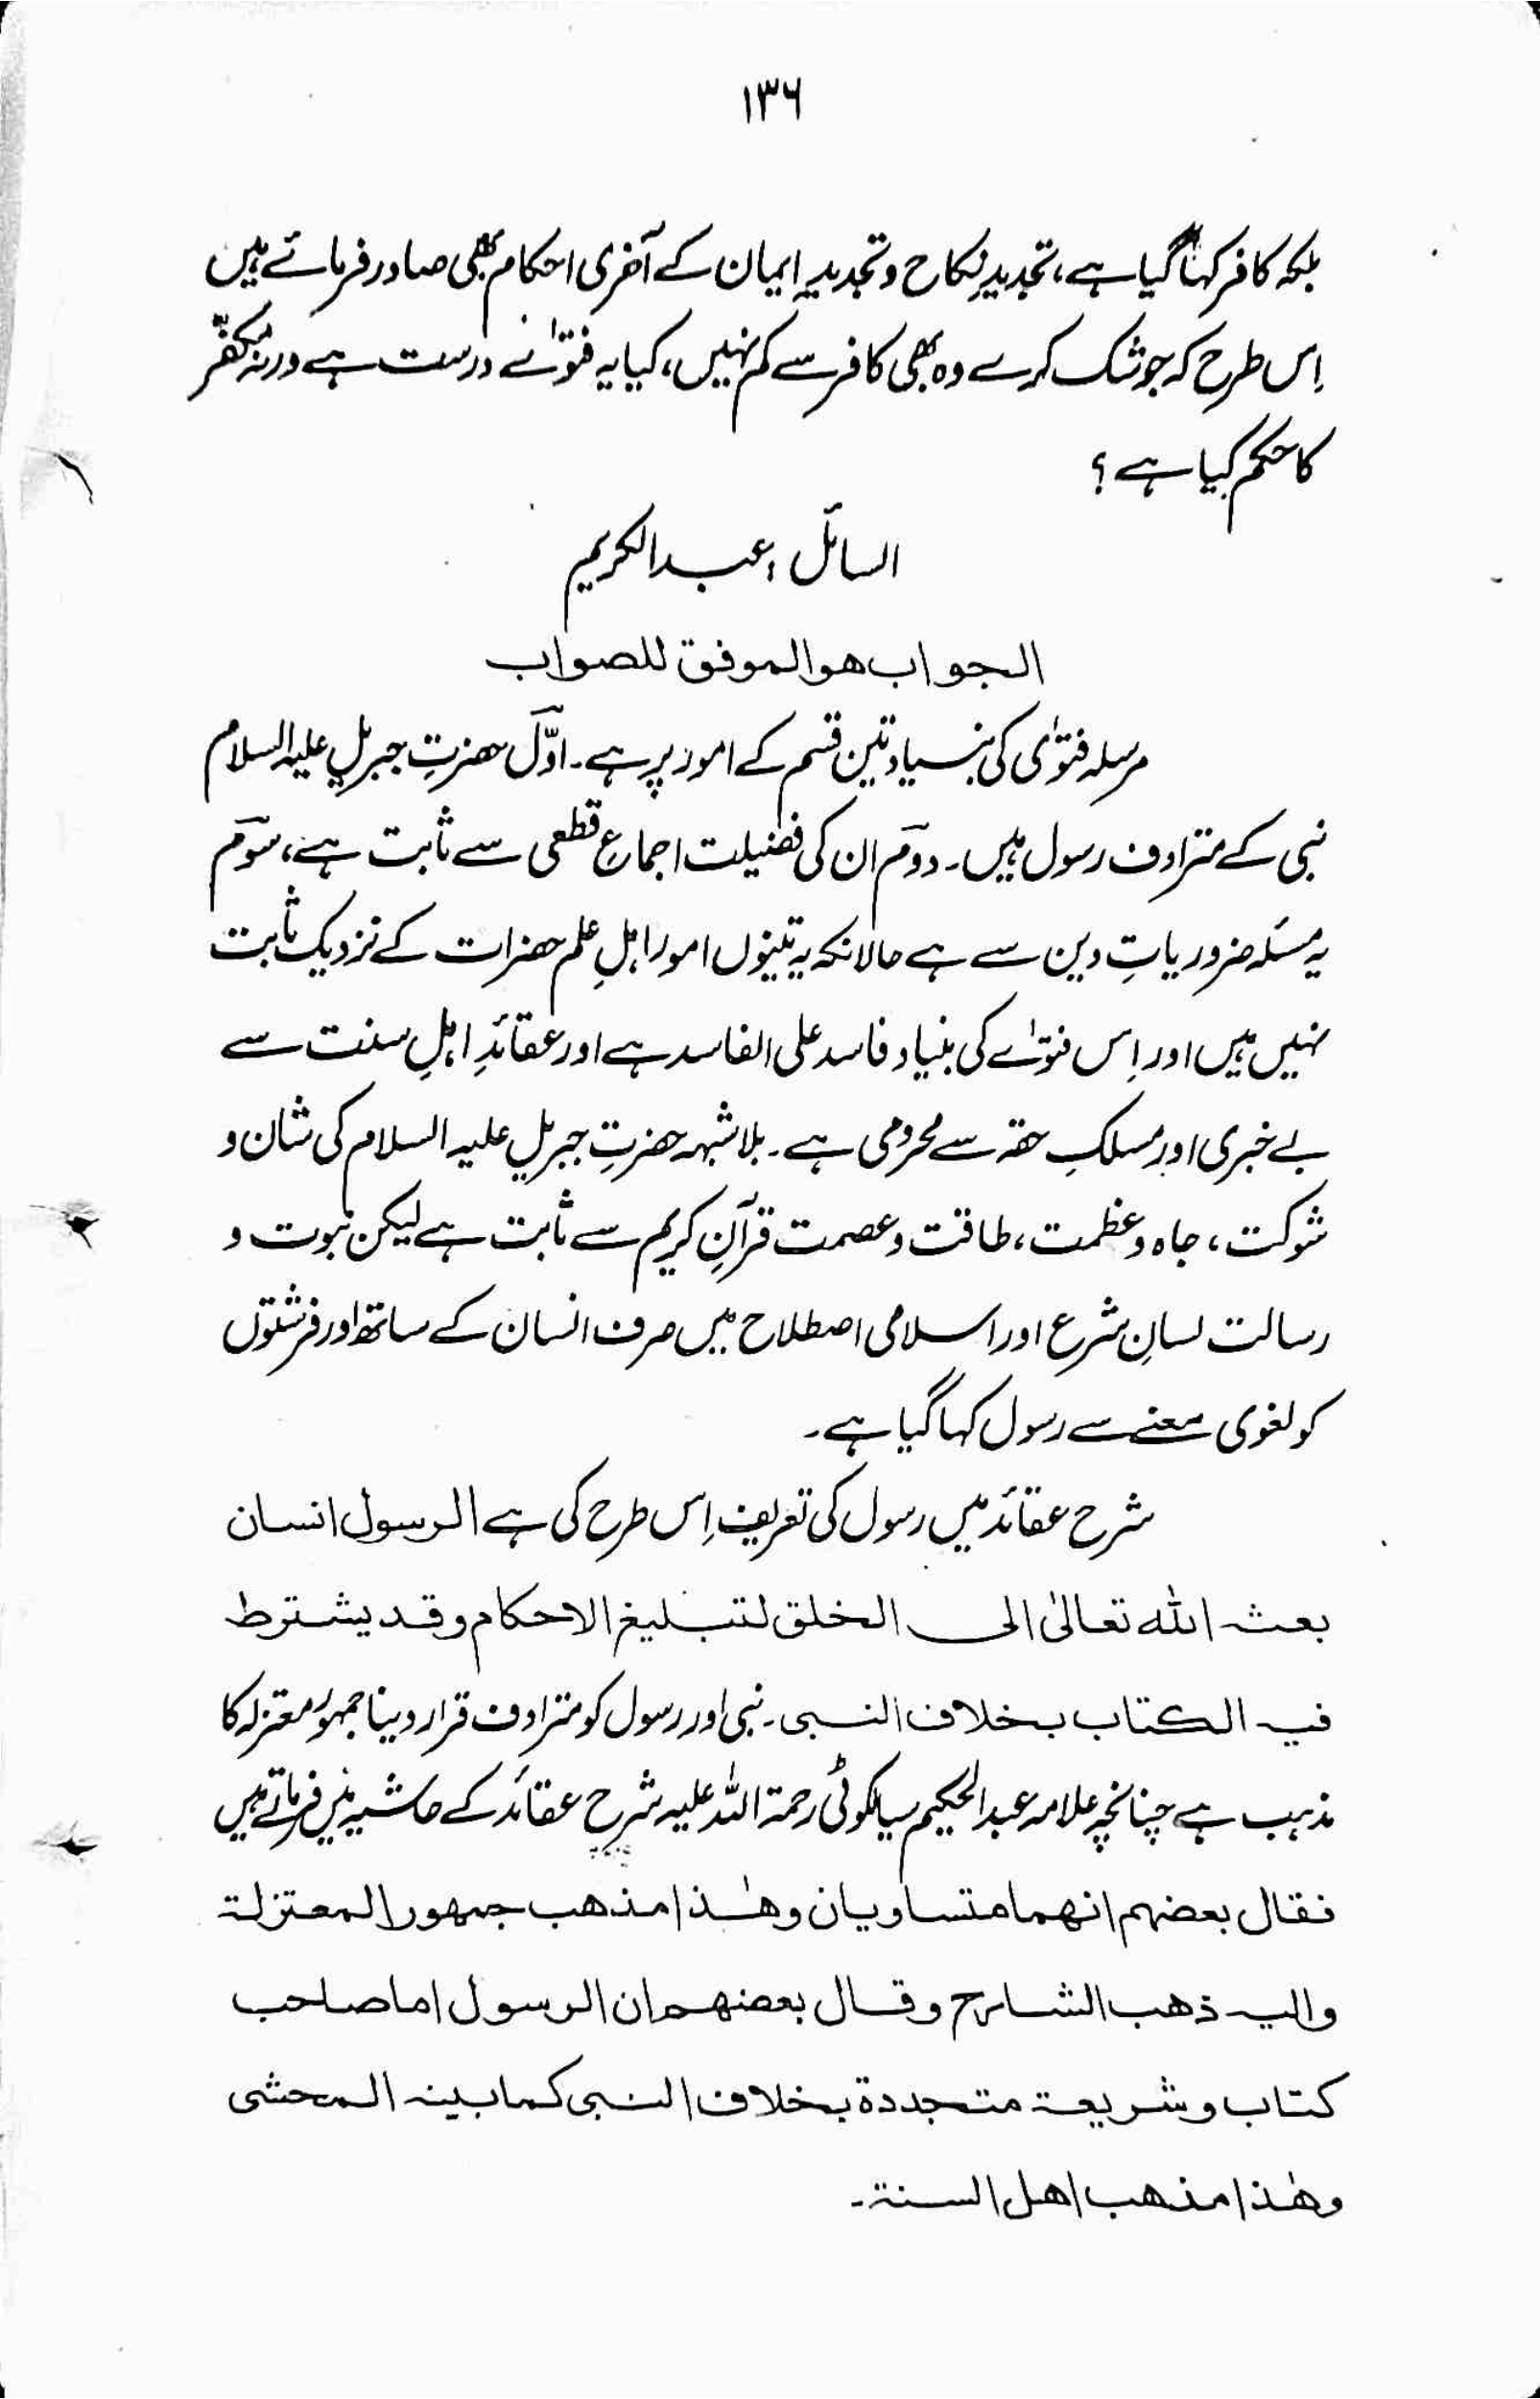 ۱۳۶
بلکہ کافر کہا گیا ہے، تجدیدِ نکاح و تجدیدِ ایمان کے آخری احکام بھی صادر فرمائے ہیں
اِس طرح کہ جو شک کرے وہ بھی کافر سے کم نہیں، کیا یہ فتوٰے درست ہے ورنہ مکفّر
کا حکم کیا ہے؟
السائل : عبدالکریم
الجواب هو الموفق للصواب
مرسلہ فتوٰی کی بنیاد تین قسم کے امور پر ہے۔ اوّل حضرتِ جبریل علیہ السلام
نبی کے مترادف رسول ہیں۔ دوم ان کی فضیلت اجماعِ قطعی سے ثابت ہے، سوم
یہ مسئلہ ضروریاتِ دین سے ہے حالانکہ یہ تینوں امور اہلِ علم حضرات کے نزدیک ثابت
نہیں ہیں اور اِس فتوٰے کی بنیاد فاسد علی الفاسد ہے اور عقائدِ اہلِ سنت سے
بے خبری اور مسلکِ حقہ سے محرومی ہے۔ بلاشبہہ حضرتِ جبریل علیہ السلام کی شان و
شوکت، جاہ و عظمت، طاقت و عصمت قرآنِ کریم سے ثابت ہے لیکن نبوت و
رسالت لسانِ شرع اور اسلامی اصطلاح میں صرف انسان کے ساتھ اور فرشتوں
کو لغوی معنے سے رسول کہا گیا ہے۔
شرح عقائد میں رسول کی تعریف اِس طرح کی ہے الرسول انسان
بعثہ اللہ تعالیٰ الی الخلق لتبلیغ الاحکام وقد یشترط
فیہ الکتاب بخلاف النبی۔ نبی اور رسول کو مترادف قرار دینا جمہور معتزلہ کا
مذہب ہے چنانچہ علامہ عبدالحکیم سیالکوٹی رحمۃ اللہ علیہ شرح عقائد کے حاشیہ میں فرماتے ہیں
فقال بعضهم انهما متساویان وهٰذا مذهب جمهور المعتزلة
والیہ ذهب الشارح وقال بعضهم ان الرسول اما صاحب
کتاب وشریعة متجددة بخلاف النبی کما بینہ المحشی
وهٰذا مذهب اهل السنة۔